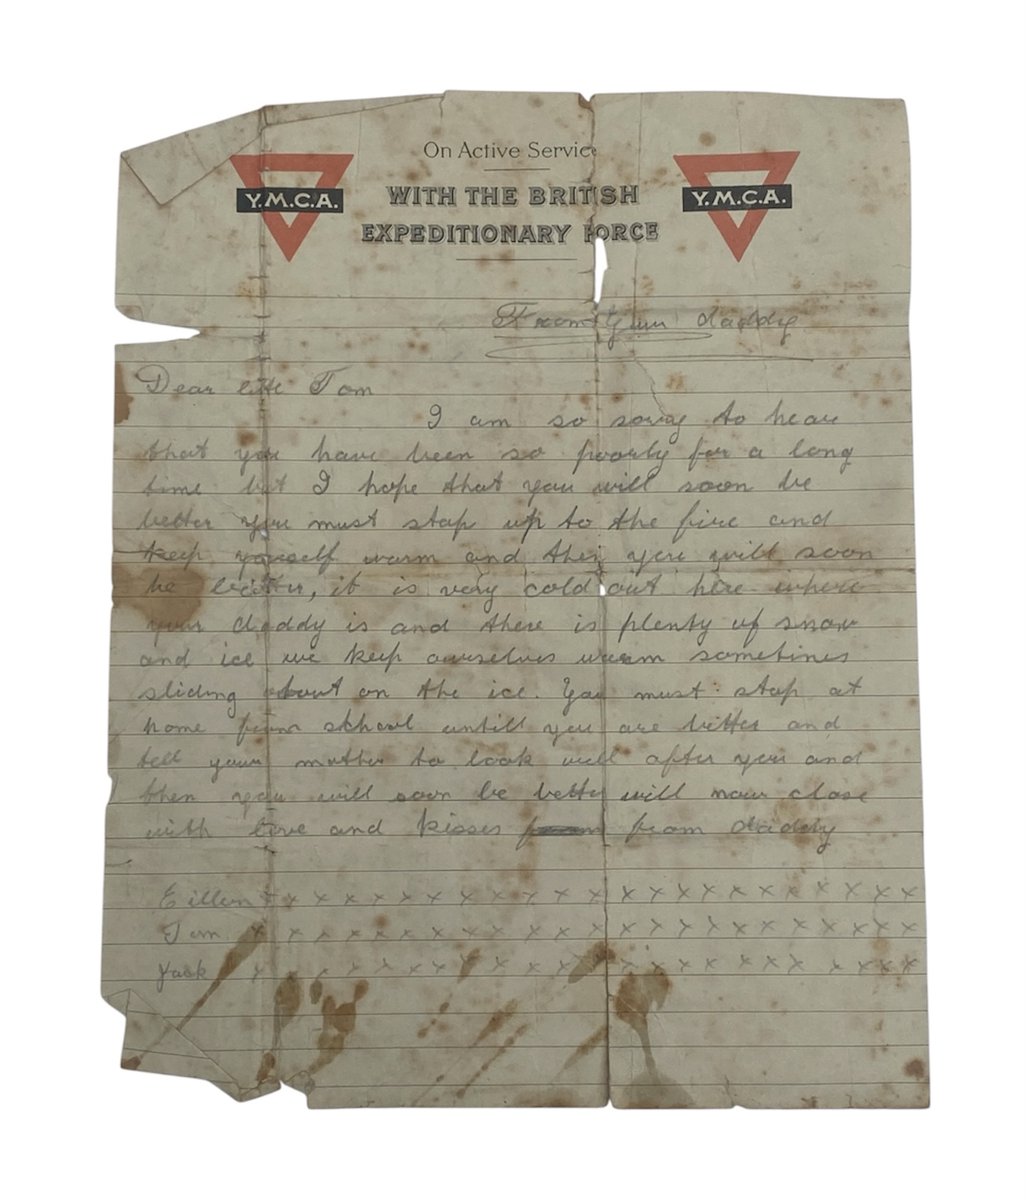 On Active Service
Y.M.C.A. WITH THE BRITISH Y.M.C.A.
EXPEDITIONARY FORCE
From Your daddy
Dear little Tom
I am so sorry to hear
that you have been so poorly for a long
time but I hope that you will soon be
better you must stop up to the fire and
keep yourself warm and then you will soon
be better, it is very cold out here where
your daddy is and there is plenty of snow
and ice we keep ourselves warm sometimes
sliding about on the ice. You must stop at
home from school untill you are better and
tell your mother to look well after you and
then you will soon be better will now close
with love and kisses from daddy
Eillen x x x x x x x x x x x x x x x x x x x x x x x
Tom x x x x x x x x x x x x x x x x x x x x x x x
Jack x x x x x x x x x x x x x x x x x x x x x x